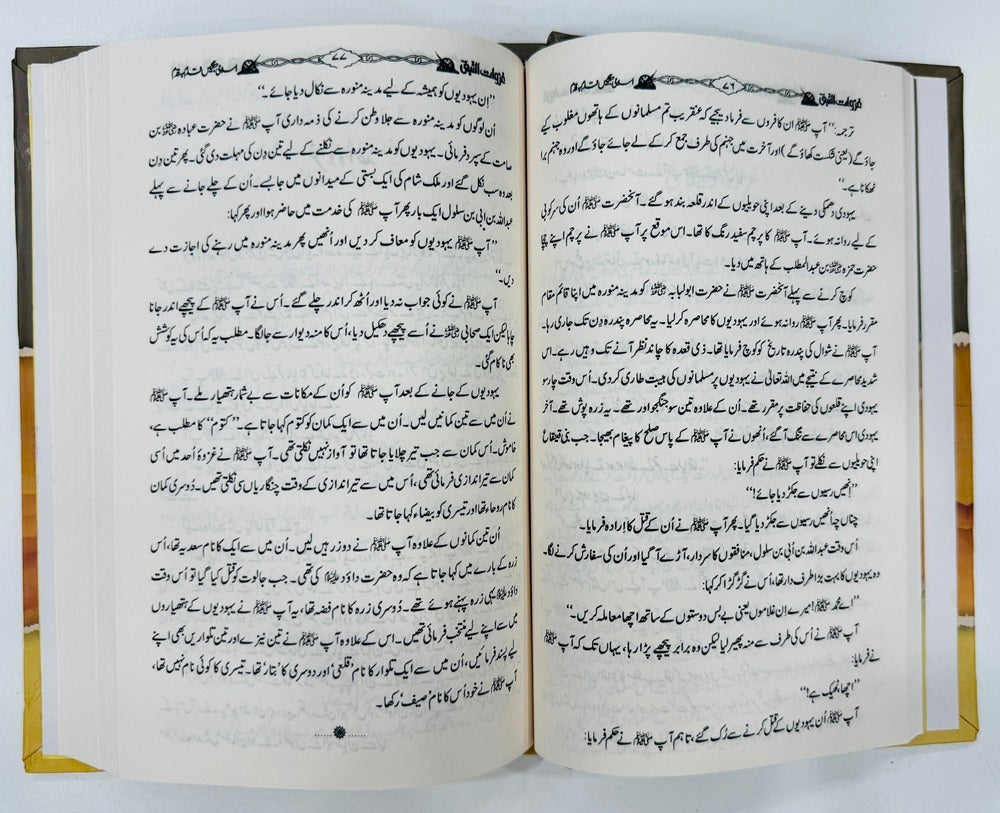 غزوات النبی ﷺ ۷۶ اسلامی جنگیں قدم بہ قدم
ترجمہ: ’’آپ ﷺ ان کافروں سے فرما دیجیے کہ عنقریب تم مسلمانوں کے ہاتھوں مغلوب کیے
جاؤ گے (یعنی شکست کھاؤ گے) اور آخرت میں جہنم کی طرف جمع کر کے لے جائے جاؤ گے اور وہ جہنم برا
ٹھکانا ہے۔‘‘
یہودی دھمکی دینے کے بعد اپنی حویلیوں کے اندر قلعہ بند ہو گئے۔ آنحضرت ﷺ اُن کی سرکوبی
کے لیے روانہ ہوئے۔ آپ ﷺ کا پرچم سفید رنگ کا تھا۔ اس موقع پر آپ ﷺ نے پرچم اپنے چچا
حضرت حمزہ ؓ بن عبدالمطلب کے ہاتھ میں دیا۔
کوچ کرنے سے پہلے آنحضرت ﷺ نے حضرت ابولبابہ ؓ کو مدینہ منورہ میں اپنا قائم مقام
مقرر فرمایا۔ پھر آپ ﷺ روانہ ہوئے اور یہودیوں کا محاصرہ کر لیا۔ یہ محاصرہ پندرہ دِن تک جاری رہا۔
آپ ﷺ نے شوال کی پندرہ تاریخ کو کوچ فرمایا تھا۔ ذی قعدہ کا چاند نظر آنے تک وہیں رہے۔ اس
شدید محاصرے کے نتیجے میں اللہ تعالیٰ نے یہودیوں پر مسلمانوں کی ہیبت طاری کر دی۔ اُس وقت چار سو
یہودی اپنے قلعوں کی حفاظت پر مقرر تھے۔ اُن کے علاوہ تین سو جنگجو اور تھے۔ یہ زرہ پوش تھے۔ آخر
یہودی اس محاصرے سے تنگ آ گئے، اُنھوں نے آپ ﷺ کے پاس صلح کا پیغام بھیجا۔ جب بنی قینقاع
اپنی حویلیوں سے نکلے تو آپ ﷺ نے حکم فرمایا:
’’اِنھیں رسیوں سے جکڑ دیا جائے!‘‘
چناں چہ اُنھیں رسیوں سے جکڑ دیا گیا۔ پھر آپ ﷺ نے اُن کے قتل کا اِرادہ فرمایا۔
اُس وقت عبداللہ بن اُبی بن سلول، منافقوں کا سردار، آڑے آ گیا اور اُن کی سفارش کرنے لگا۔
وہ یہودیوں کا بہت بڑا طرف دار تھا، اُس نے گڑگڑا کر کہا:
’’اے محمد ﷺ! میرے اِن غلاموں یعنی بے بس دوستوں کے ساتھ اچھا معاملہ کریں۔‘‘
آپ ﷺ نے اُس کی طرف سے منہ پھیر لیا لیکن وہ برابر پیچھے پڑا رہا، یہاں تک کہ آپ ﷺ
نے فرمایا:
’’اچھا ٹھیک ہے!‘‘
آپ ﷺ اُن یہودیوں کے قتل کرنے سے رُک گئے، تاہم آپ ﷺ نے حکم فرمایا:
غزوات النبی ﷺ ۷۷ اسلامی جنگیں قدم بہ قدم
’’اِن یہودیوں کو ہمیشہ کے لیے مدینہ منورہ سے نکال دیا جائے۔‘‘
اُن لوگوں کو مدینہ منورہ سے جلا وطن کرنے کی ذمہ داری آپ ﷺ نے حضرت عبادہ ؓ بن
صامت کے سپرد فرمائی۔ یہودیوں کو مدینہ منورہ سے نکلنے کے لیے تین دِن کی مہلت دی گئی۔ پھر تین دِن
بعد وہ سب نکل گئے اور ملک شام کی ایک بستی کے میدانوں میں جا بسے۔ اُن کے چلے جانے سے پہلے
عبداللہ بن ابی بن سلول ایک بار پھر آپ ﷺ کی خدمت میں حاضر ہوا اور پھر کہا:
’’آپ ﷺ یہودیوں کو معاف کر دیں اور اُنھیں پھر مدینہ منورہ میں رہنے کی اجازت دے
دیں۔‘‘
آپ ﷺ نے کوئی جواب نہ دیا اور اُٹھ کر اندر چلے گئے۔ اُس نے آپ ﷺ کے پیچھے اندر جانا
چاہا لیکن ایک صحابی ؓ نے اُسے پیچھے دھکیل دیا، اُس کا منہ دیوار سے جا لگا۔ مطلب یہ کہ اُس کی یہ کوشش
بھی ناکام گئی۔
یہودیوں کے جانے کے بعد آپ ﷺ کو اُن کے مکانات سے بے شمار ہتھیار ملے۔ آپ ﷺ
نے اُن میں سے تین کمانیں لیں۔ اُن میں سے ایک کمان کو کتوم کہا جاتا ہے۔ ’’کتوم‘‘ کا مطلب ہے،
خاموش۔ اُس کمان سے جب تیر چلایا جاتا تھا تو آواز نہیں نکلتی تھی۔ آپ ﷺ نے غزوۂ اُحد میں اُسی
کمان سے تیر اندازی فرمائی تھی، اُس میں سے تیر اندازی کے وقت چنگاریاں سی نکلتی تھیں۔ دُوسری کمان
کا نام روحاء تھا اور تیسری کو بیضاء کہا جاتا تھا۔
اُن تین کمانوں کے علاوہ آپ ﷺ نے دو زرہیں لیں۔ اُن میں سے ایک کا نام سعدیہ تھا، اُس
زرہ کے بارے میں کہا جاتا ہے کہ وہ حضرت داؤد علیہ السلام کی تھی۔ جب جالوت کو قتل کیا گیا تو اُس وقت
داؤد علیہ السلام یہی زرہ پہنے ہوئے تھے۔ دُوسری زرہ کا نام فضہ تھا، یہ آپ ﷺ نے یہودیوں کے ہتھیاروں
میں سے اپنے لیے منتخب فرمائی تھیں۔ اس کے علاوہ آپ ﷺ نے تین نیزے اور تین تلواریں بھی اپنے
لیے پسند فرمائیں، اُن میں سے ایک تلوار کا نام ’قلعی‘ اور دوسری کا ’بتار‘ تھا۔ تیسری کا کوئی نام نہیں تھا،
آپ ﷺ نے خود اُس کا نام ’صیف‘ رکھا۔